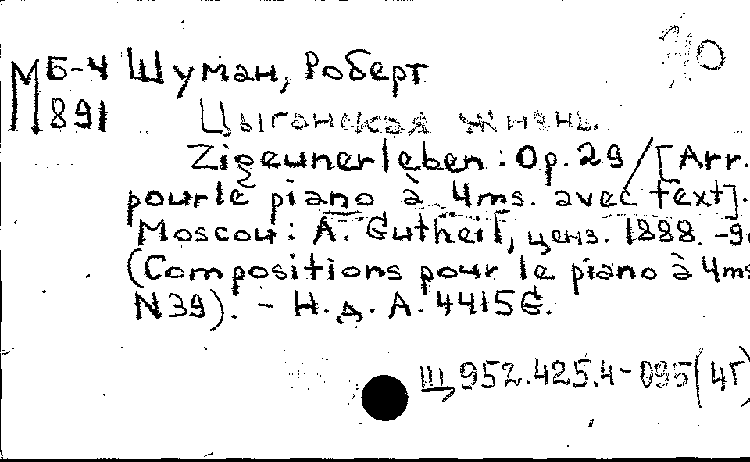 70
М Б-4 Шуман, Роберт
891 Цыганская жизнь.
Zigeunerleben: Op. 29 / [Arr.
pour le piano à 4ms. avec text].
Moscou: A. Gutheil, ценз. 1888. -9
(Compositions pour le piano à 4ms
N39). - Н. д. А. 4415 G.
Щ 952.425.4-095(4Г)